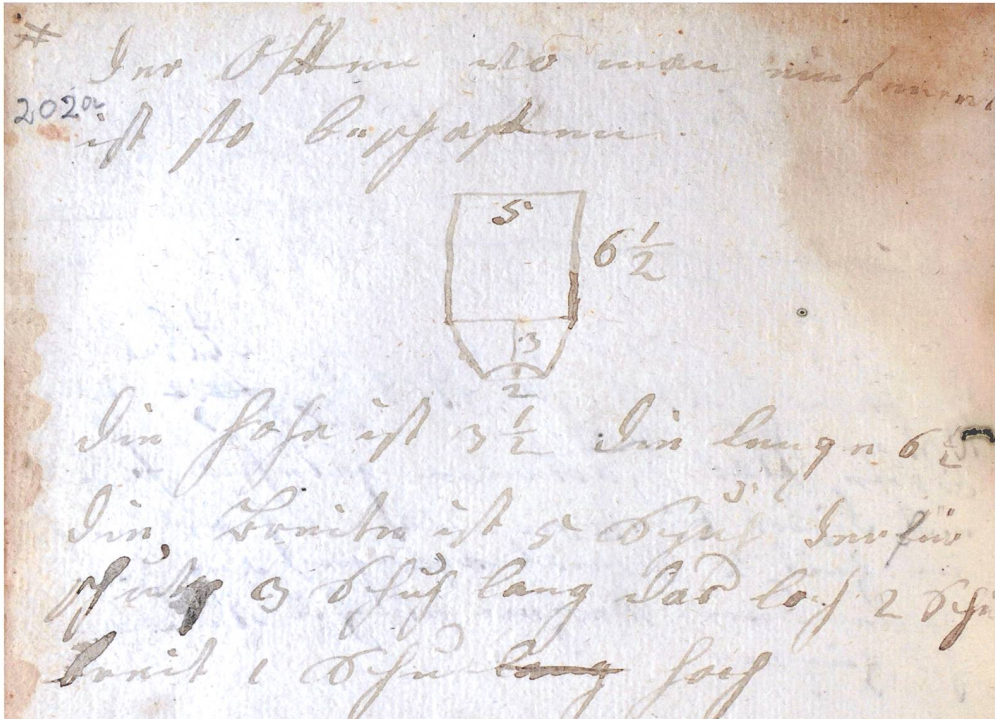 #
202a
der Offen wo man ein
ist so beschaffen
5
6 1/2
3
2
die hohe ist 3 1/2 die lenge 6 1/2
die Breite ist 5 Schuh der für
3 Schuh lang das loch 2 Schu
breit 1 Schu lang hoch